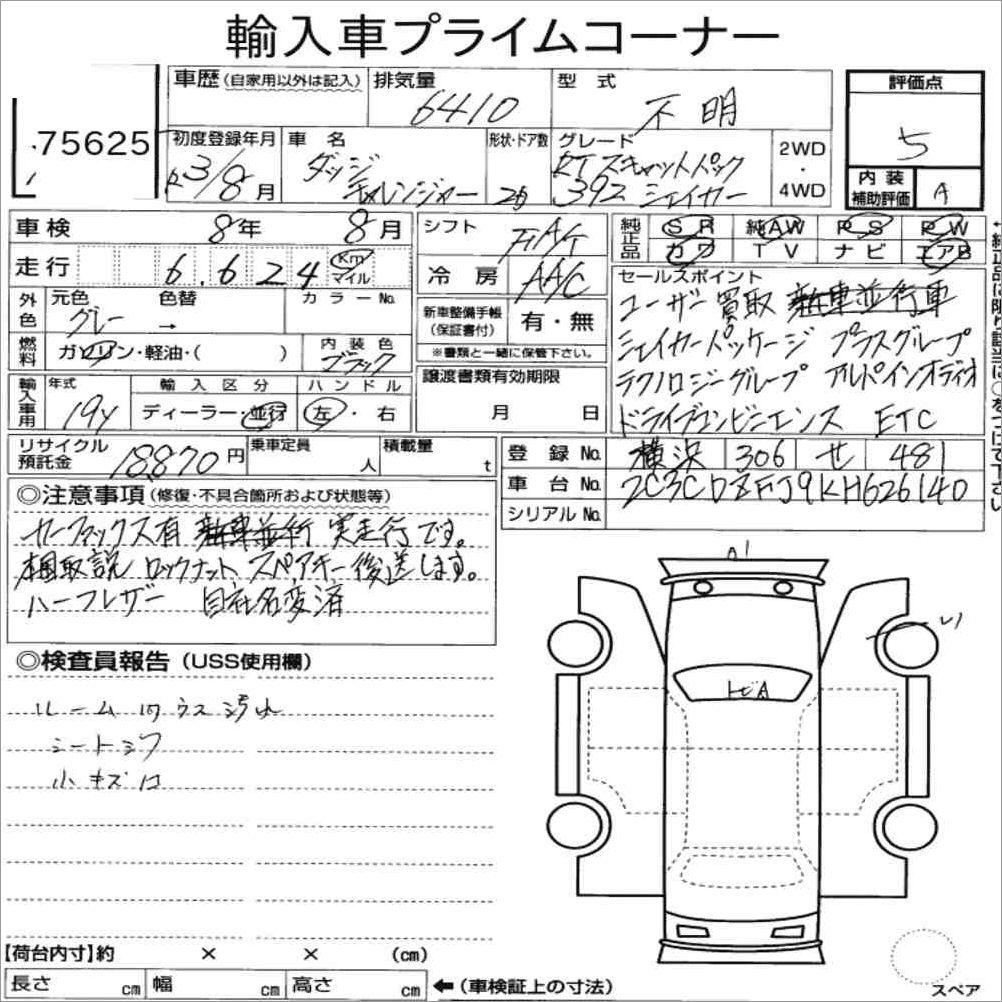 輸入車プライムコーナー
75625
車歴(自家用以外は記入) 排気量 6410 型式 不明
評価点 5
初度登録年月 R3/8月 車名 ダッジ チャレンジャー
形状・ドア数 2D
グレード RTスキャットパック 392 シェイカー
2WD・4WD
内装補助評価 A
車検 8年 8月
シフト FAT
純正品 SR 純AW PS PW
カワ TV ナビ エアB
走行 6.624 Km マイル
冷房 AAC
セールスポイント
ユーザー買取 新車並行車
シェイカーパッケージ プラスグループ
テクノロジーグループ アルパインオーディオ
ドライブコンビニエンス ETC
外色 元色 グレー → 色替 カラーNo.
新車整備手帳(保証書付) 有・無
※書類と一緒に保管下さい。
燃料 ガソリン・軽油・( ) 内装色 ブラック
譲渡書類有効期限
月 日
輸入車用 年式 19y 輸入区分 ディーラー・並行 ハンドル 左・右
リサイクル預託金 18,870円 乗車定員 人 積載量 t
登録No. 横浜 306 せ 481
車台No. 2C3CDZFJ9KH626140
シリアルNo.
◎注意事項(修復・不具合箇所および状態等)
カーファックス有 新車並行 実走行です。
梱取説 ロックナット スペアキー後送します。
ハーフレザー 自社名変済
◎検査員報告(USS使用欄)
ルーム内ウス汚れ
シートシワ
小キズ
A1
トビA
【荷台内寸】約 × × (cm)
長さ cm 幅 cm 高さ cm ←(車検証上の寸法)
スペア